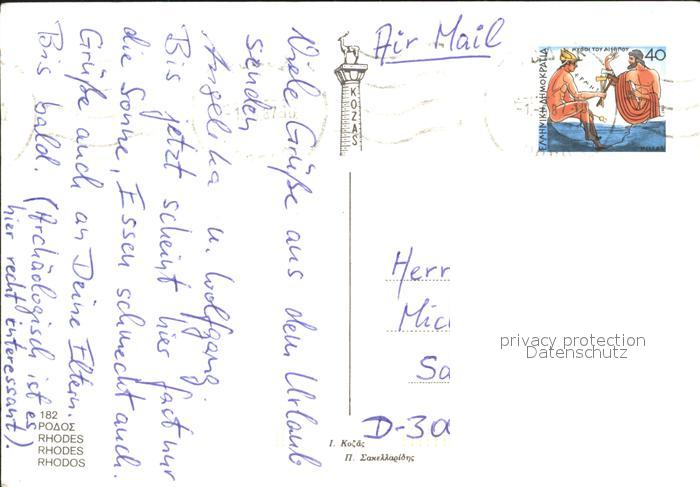 Viele Grüße aus dem Urlaub
senden
Angelika u. Wolfgang.
Bis jetzt scheint hier fast nur
die Sonne, Essen schmeckt auch.
Grüße auch an Deine Eltern.
Bis bald. (Archäologisch ist es
hier recht interessant).
182
ΡΟΔΟΣ
RHODES
RHODES
RHODOS
KOZAS
Ι. Κοζάς
Π. Σακελλαρίδης
Air Mail
ΜΥΘΟΙ ΤΟΥ ΑΙΣΩΠΟΥ
40
ΕΛΛΗΝΙΚΗ ΔΗΜΟΚΡΑΤΙΑ
HELLAS
Herr
Mic
Sa
D-30
privacy protection
Datenschutz